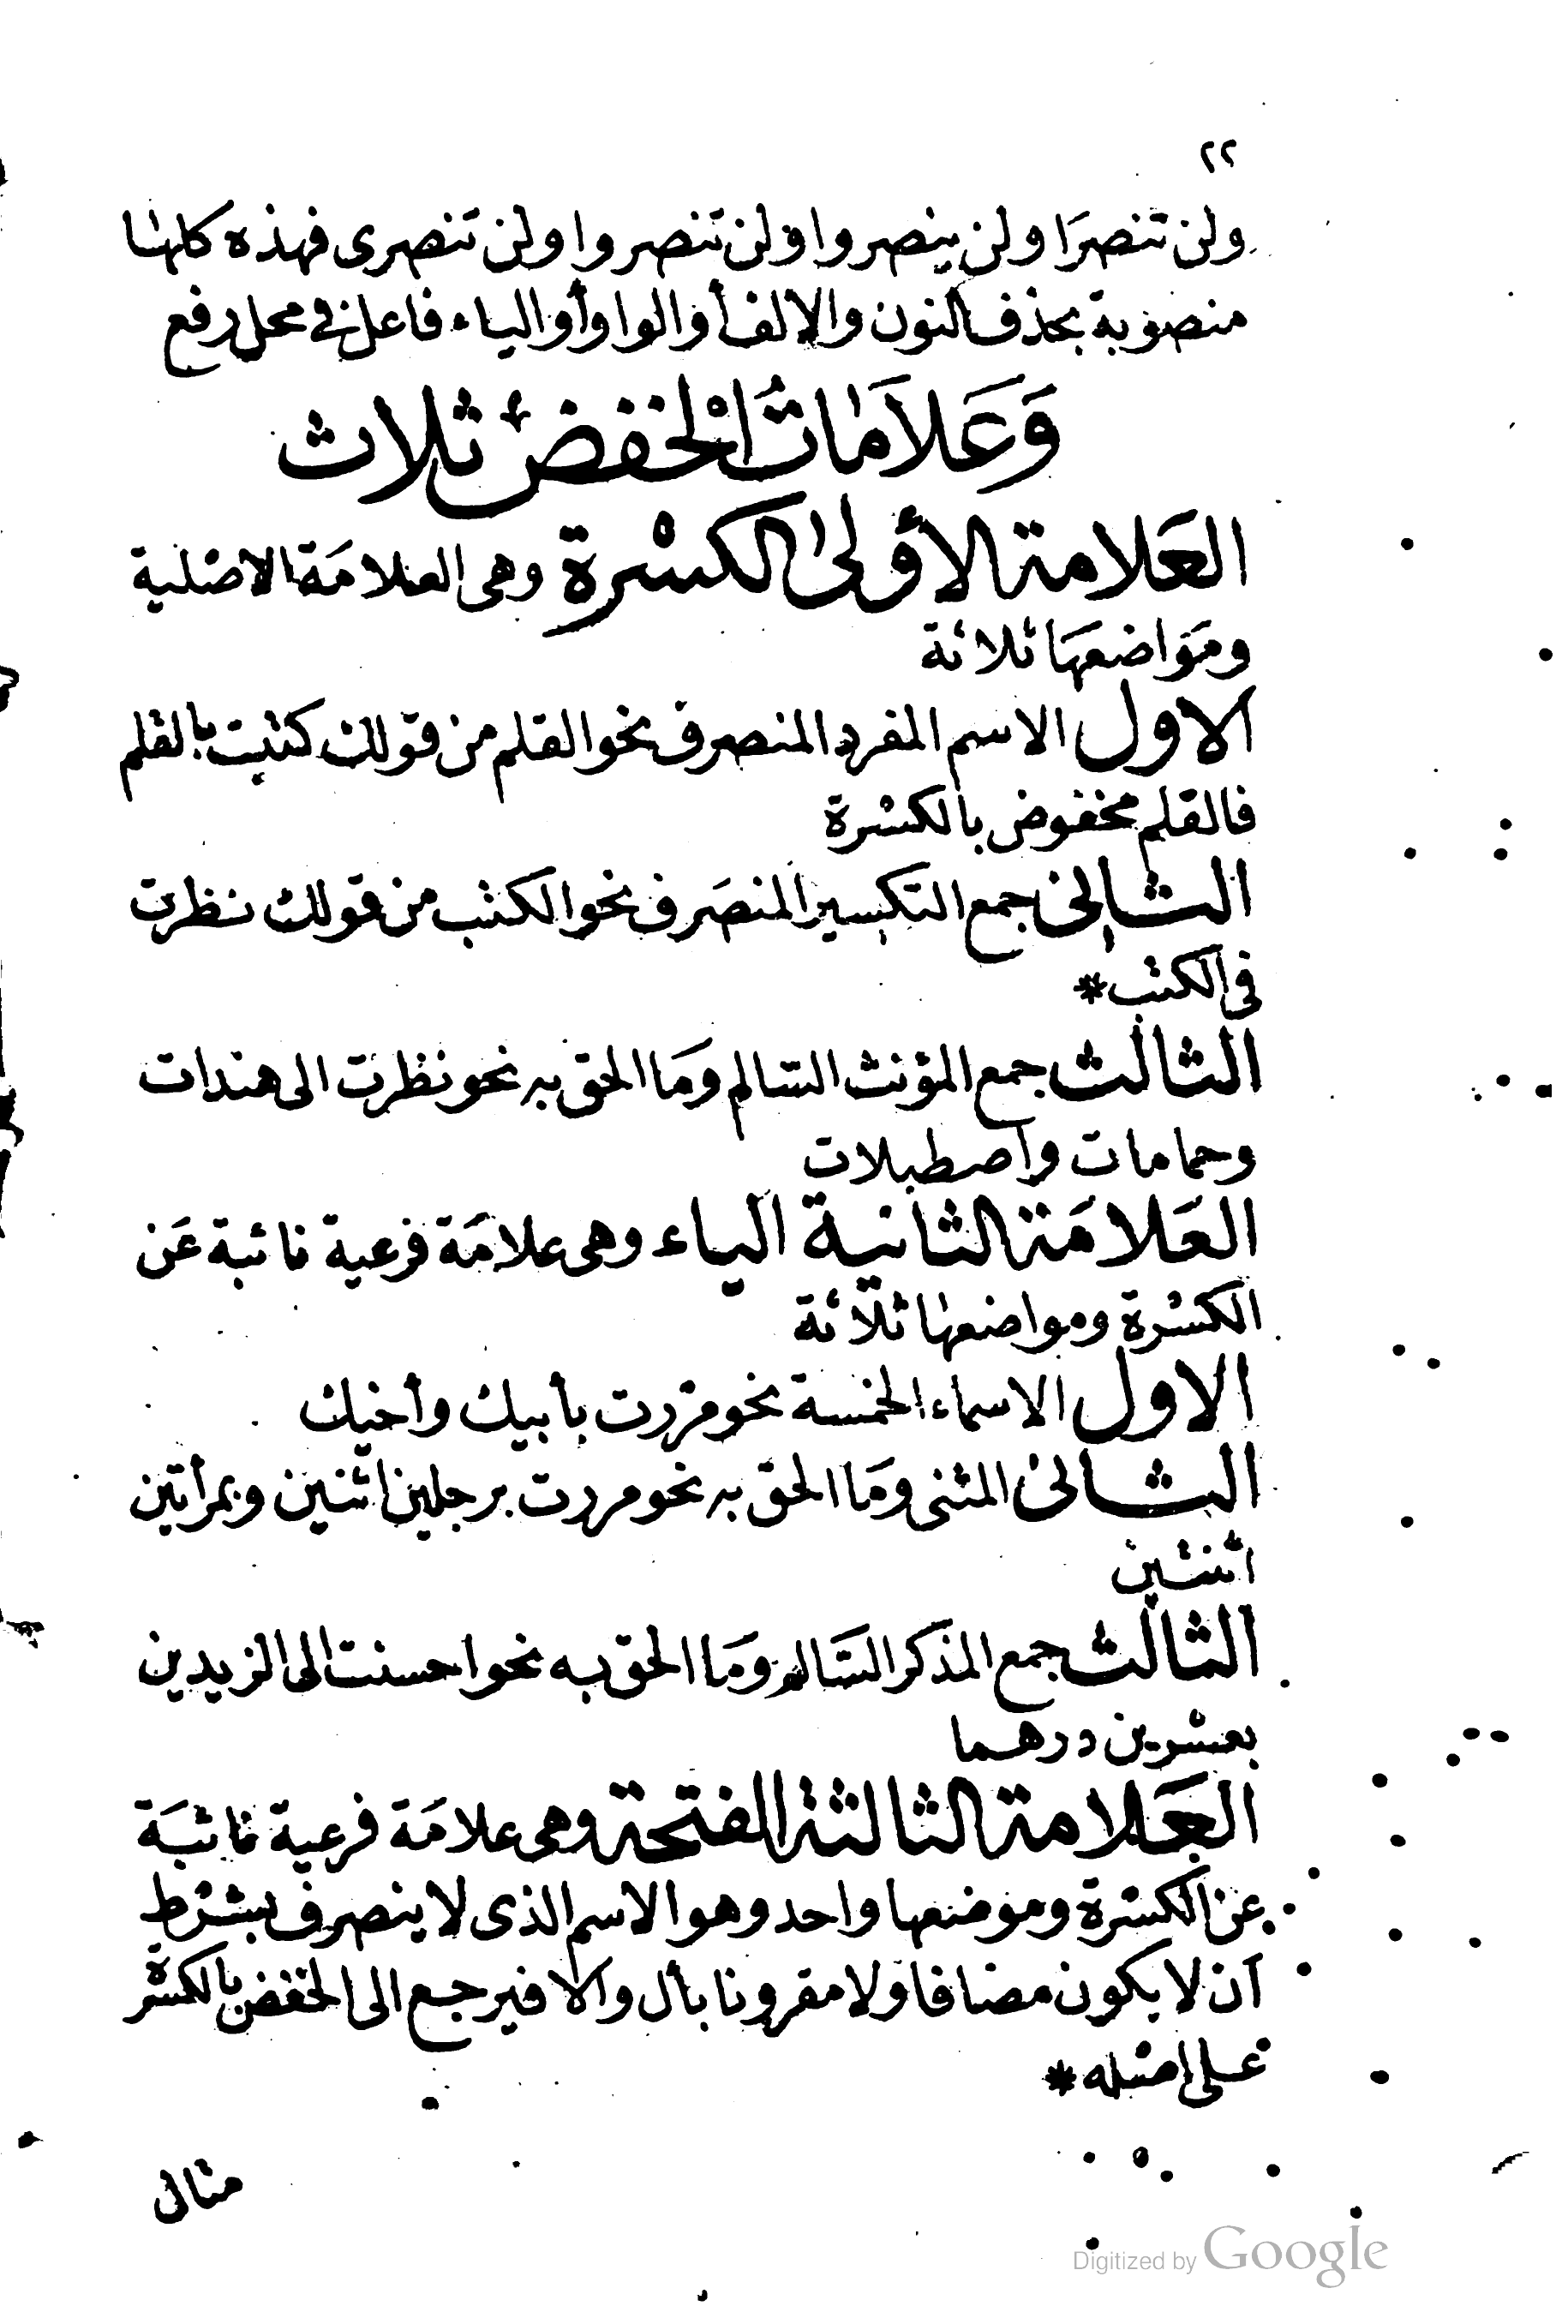 ٢٢
ولن تنصرَا ولن ينصروا ولن تنصروا ولن تنصرى فهذه كلها
منصوبة بحذف النون والالف أو الواو أو الياء فاعل فى محل رفع
وَعَلاَمَاتُ الْخفض ثلاث
العَلامة الأولى الكسْرة وهى العلامَة الاصْلية
ومَوَاضعهَا ثلاثة
الاول الاسم المفرد المنصرف نحو القلم من قولك كتبت بالقلم
فالقلم مخفوض بالكسْرة
الثانى جمع التكسير المنصَرف نحو الكتب من قولك نظرت
فى الكتب *
الثالث جمع المؤنث السالم ومَا الحق به نحو نظرت الى هندات
وحمامات واصطبلات
العَلامَة الثانية الياء وهى علامَة فرعية نائبة عَن
الكسْرة ومواضعها ثلاثة
الاول الاسماء الخمسة نحو مررت بأبيك وأخيك
الثانى المثنى ومَا الحق به نحو مررت برجلين اثنين وبمرأتين
اثنتين
الثالث جمع المذكر السَالم ومَا الحق به نحو احسنت الى الزيدين
بعشرين درهما
العَلامة الثالثة الفتحة وهى علامَة فرعية نائبَة
عن الكسْرة وموضعها واحد وهو الاسم الذى لا ينصرف بشرْط
أن لا يكون مضافا ولا مقرونا بأل والا فيرجع الى الخفض بالكسْرة
على اصْله *
مثال
Digitized by Google